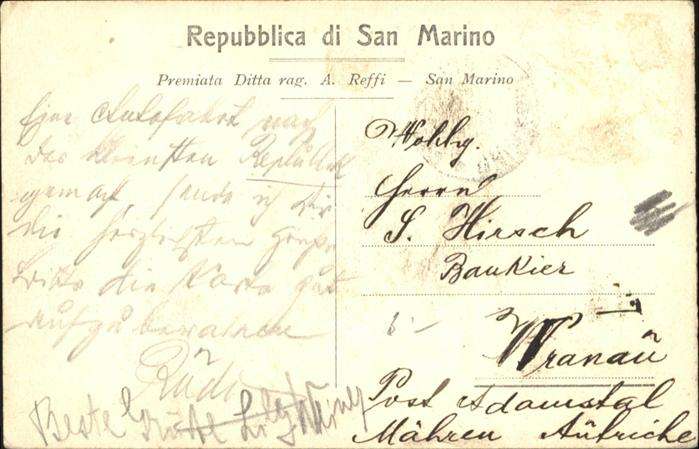 Repubblica di San Marino
Premiata Ditta rag. A. Reffi — San Marino
Eine Autofahrt nach
der kleinsten Republik
gemacht, sende ich Dir
die herzlichsten Grüße
Bitte die Karte gut
aufzubewahren
Rüdi
Beste Grüße
Wohlg.
Herrn
S. Hirsch
Bankier
Wranaü
Post Adamstal
Mähren Aütriche